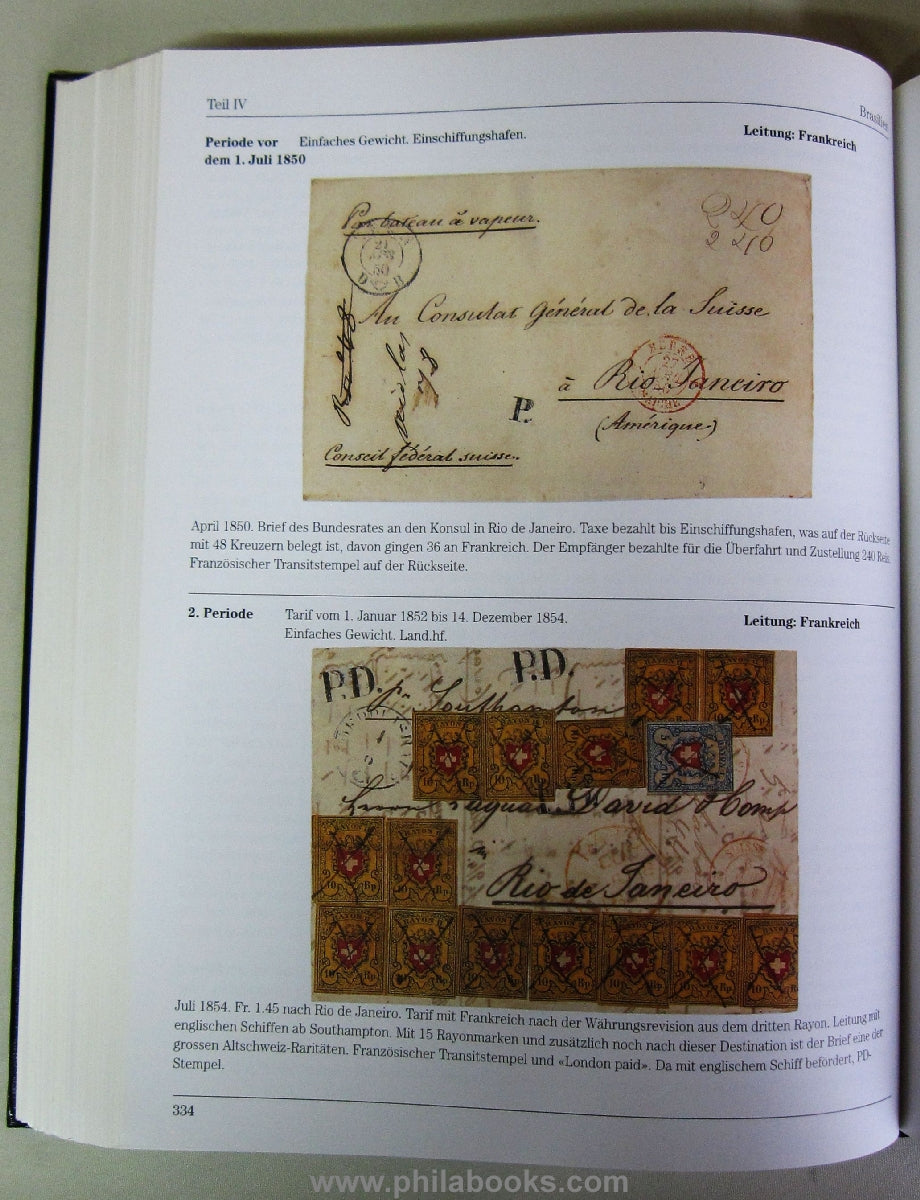 Teil IV
Brasilien
Periode vor Einfaches Gewicht. Einschiffungshafen. Leitung: Frankreich
dem 1. Juli 1850
Par bateau à vapeur.
240
2 240
Au Consulat Général de la Suisse
à Rio Janeiro
P.
(Amérique)
Conseil fédéral suisse.
April 1850. Brief des Bundesrates an den Konsul in Rio de Janeiro. Taxe bezahlt bis Einschiffungshafen, was auf der Rückseite
mit 48 Kreuzern belegt ist, davon gingen 36 an Frankreich. Der Empfänger bezahlte für die Überfahrt und Zustellung 240 Reis.
Französischer Transitstempel auf der Rückseite.
2. Periode Tarif vom 1. Januar 1852 bis 14. Dezember 1854. Leitung: Frankreich
Einfaches Gewicht. Land.hf.
P.D. P.D.
pr Southampton
David & Comp
Rio de Janeiro
Juli 1854. Fr. 1.45 nach Rio de Janeiro. Tarif mit Frankreich nach der Währungsrevision aus dem dritten Rayon. Leitung mit
englischen Schiffen ab Southampton. Mit 15 Rayonmarken und zusätzlich noch nach dieser Destination ist der Brief eine der
grossen Altschweiz-Raritäten. Französischer Transitstempel und «London paid». Da mit englischem Schiff befördert, PD-
Stempel.
334
www.philabooks.com